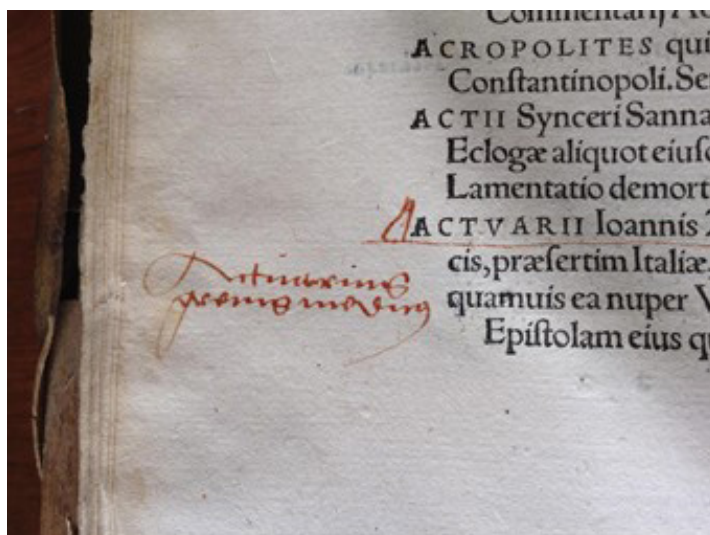 Commentarij
ACROPOLITES qui
Conſtantinopoli. Se
ACTII Synceri Sanna
Eclogæ aliquot eiuſ
Lamentatio demort
ACTVARII Ioannis
cis, præſertim Italiæ,
quamuis ea nuper V
Epiſtolam eius q
Actuarius
medicus